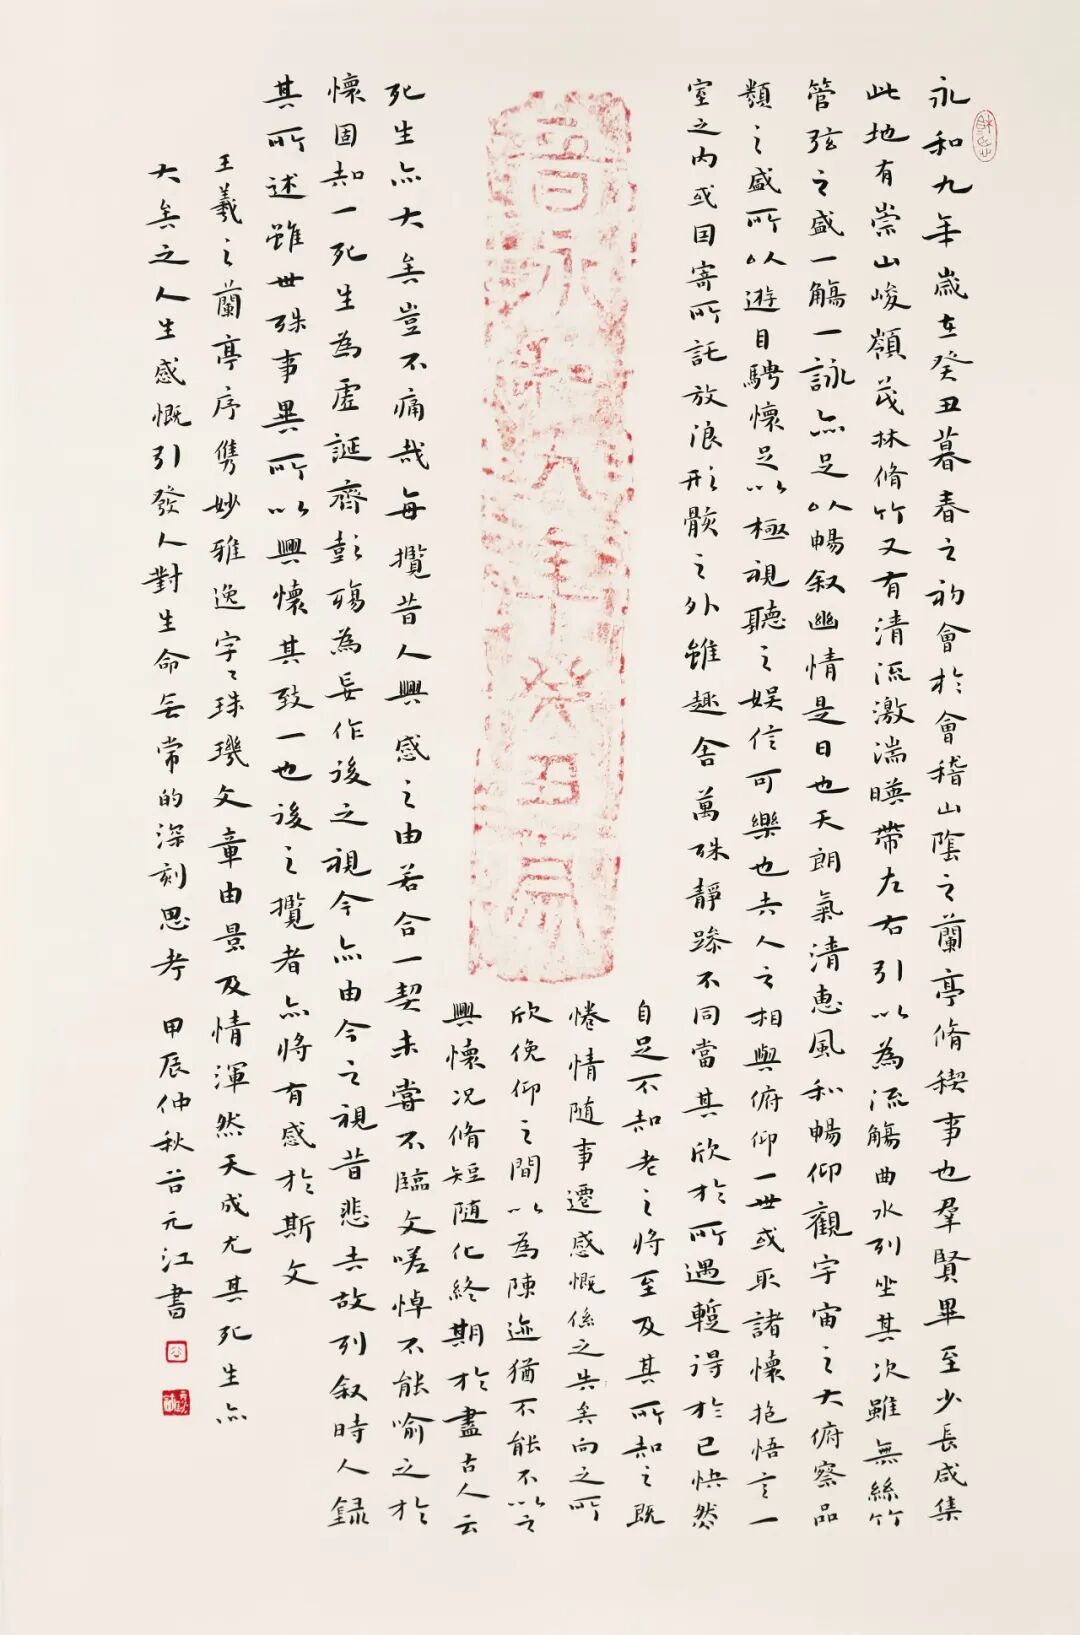 永和九年歲在癸丑暮春之初會於會稽山陰之蘭亭脩稧事也羣賢畢至少長咸集
此地有崇山峻嶺茂林脩竹又有清流激湍暎帶左右引以為流觴曲水列坐其次雖無絲竹
管弦之盛一觴一詠亦足以暢叙幽情是日也天朗氣清惠風和暢仰觀宇宙之大俯察品
類之盛所以遊目騁懷足以極視聽之娛信可樂也夫人之相與俯仰一世或取諸懷抱悟言一
室之内或因寄所託放浪形骸之外雖趣舍萬殊靜躁不同當其欣於所遇蹔得於己快然
自足不知老之將至及其所知之既
惓情隨事遷感慨係之矣向之所
欣俛仰之間以為陳迹猶不能不以之
興懷况脩短隨化終期於盡古人云
晉永和九年癸丑
死生亦大矣豈不痛哉每攬昔人興感之由若合一契未嘗不臨文嗟悼不能喻之於
懷固知一死生為虛誕齊彭殤為妄作後之視今亦由今之視昔悲夫故列叙時人錄
其所述雖世殊事異所以興懷其致一也後之攬者亦將有感於斯文
王羲之蘭亭序雋妙雅逸字〻珠璣文章由景及情渾然天成尤其死生亦
大矣之人生感慨引發人對生命無常的深刻思考 甲辰仲秋 元江書